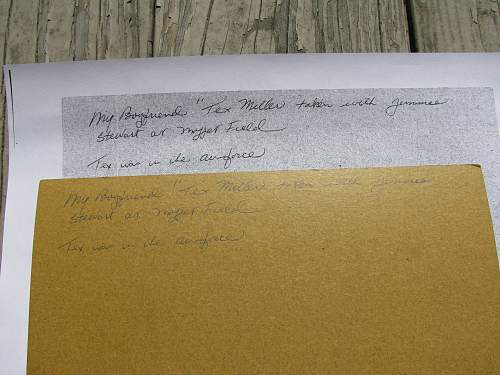 My Boyfriend "Tex Miller" taken with Jimmie
Stewart at Moffet Field
Tex was in the airforce
My Boyfriend "Tex Miller" taken with Jimmie
Stewart at Moffet Field
Tex was in the airforce